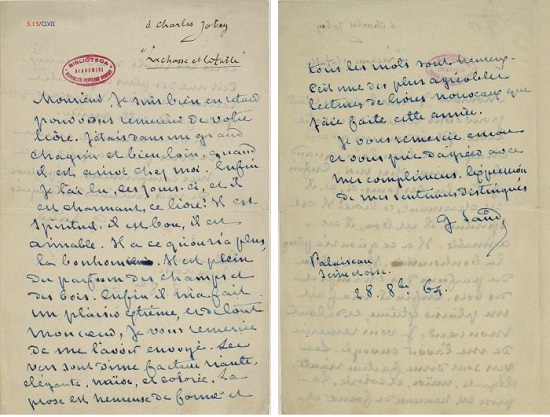 S 15/CLVII
à Charles Jobey
"La chasse et la table"
BIBLIOTECA
ACADEMIEI
Monsieur, Je suis bien en retard
pour vous remercier de votre
livre. J'étais dans un grand
chagrin et bien loin, quand
il est arrivé chez moi. Enfin
Je l'ai lu, ces jours-ci, et il
est charmant, ce livre! Il est
spirituel, il est bon, il est
aimable. Il a ce qu'on n'a plus
la bonhomie. Il est plein
du parfum des champs et
des bois. Enfin il m'a fait
un plaisir extrême, et de tout
mon cœur, je vous remercie
de me l'avoir envoyé. Les
vers sont d'une facture riante,
élégante, naïve, et colorée. La
prose est heureuse de forme et
tous les mots sont heureux.
C'est une des plus agréables
lectures de livres nouveaux que
j'aie faite cette année.
Je vous remercie encore
et vous prie d'agréer avec
mes compliments, l'expression
de mes sentiments distingués
G. Sand
Palaiseau
Seine et oise.
28. 8bre 64.